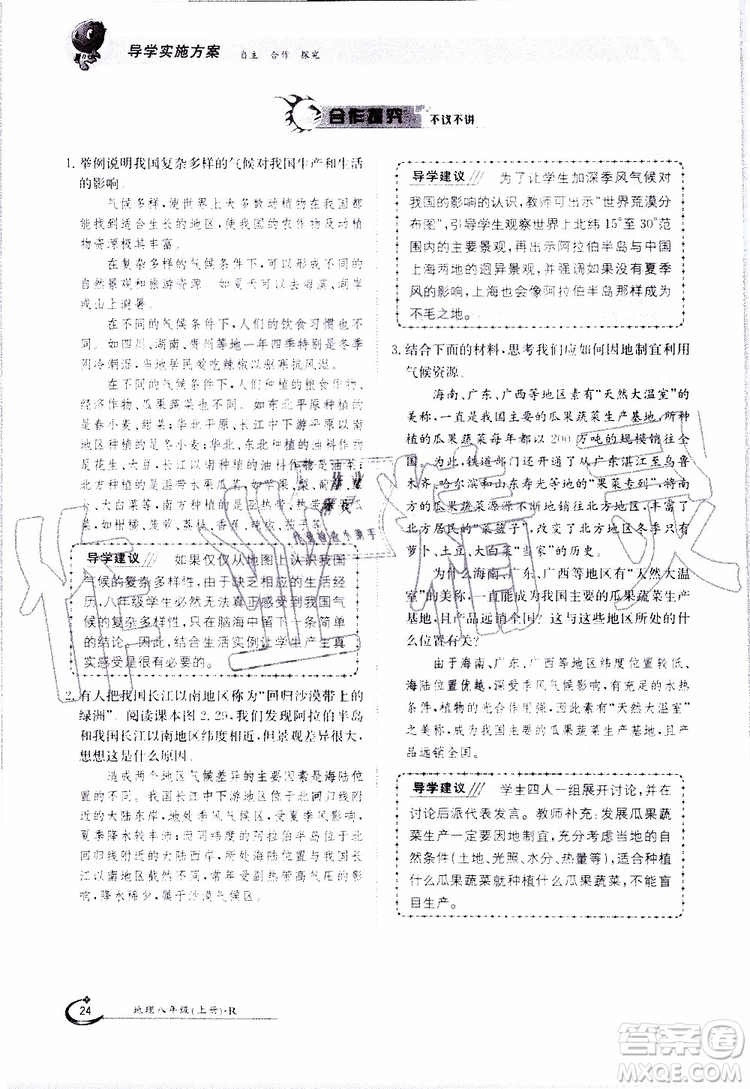 导学实施方案 自主 合作 探究
合作探究 不议不讲
1. 举例说明我国复杂多样的气候对我国生产和生活
的影响。
气候多样,使世界上大多数动植物在我国都
能找到适合生长的地区,使我国的农作物及动植
物资源极其丰富。
在复杂多样的气候条件下,可以形成不同的
自然景观和旅游资源。如夏天可以去海滨、湖岸
或上山避暑。
在不同的气候条件下,人们的饮食习惯也不
同。如四川、湖南、贵州等地一年四季特别是冬季
阴冷潮湿,居民爱吃辣椒以驱寒抗湿。
在不同的气候条件下,可以种植不同的粮食
作物、经济作物、瓜果蔬菜等。如东北平原种植的
是春小麦、甜菜;华北平原、长江中下游平原以南
地区种植的是冬小麦;华北、东北种植的油料作物
是花生、大豆,长江以南地区种植的油料作物是油菜;
北方地区种植的是温带水果,如苹果、梨、
、大白菜等,南方地区种植的是应热带、热带水果,
如柑橘、菠萝、荔枝、香蕉、
导学建议 如果仅仅从地图上认识我国
气候的复杂多样性,由于缺乏相应的生活经
历,八年级学生对于影响的感受我国气
候的复杂多样性,只有在脑海中留下一条简单
的结论。因此,结合生活实例让学生产生真
实感受是很有必要的。
2. 有人把我国长江以南地区称为“回归沙漠带上的
绿洲”。阅读课本图2.29,我们发现阿拉伯半岛
和我国长江以南地区纬度相近,但景观差异很大,
想想这是什么原因。
造成两个地区气候差异的是海陆位置因素。
我国长江中下游地区受季风气候的影响明显,
夏季降水较丰沛;而同纬度的阿拉伯半岛的大陆
内部地区虽然海陆位置与我国长江以南地区
以南地区截然不同,常年受副热带高气压的影
响,降水稀少,属于沙漠气候。
导学建议 为了让学生加深季风气候对
我国的影响的认识,教师可以出示“世界荒漠分
布图”,引导学生观察世界上北纬15°至30°范
围内的主要景观,再出示阿拉伯半岛与中国
上海两地的迥异景观,并强调如果没有夏季
风的影响,上海也会像阿拉伯半岛那样成为
不毛之地。
3. 结合下面的材料,思考我们应如何因地制宜利用
气候资源。
海南、广东、广西等地区素有“天然大温室”的
美称,一直是我国主要的瓜果蔬菜生产基地,生产
的瓜果蔬菜每年都以200万吨的规模销往全
国。为此,铁道部门开设了从广东湛江至乌鲁
木齐、哈尔滨和山东寿光等地的“果菜专列”。同
时,这里的瓜果蔬菜源源不断地供应,丰富了
北方居民的“菜篮子”,改变了北方地区冬季只有
萝卜、土豆、大白菜“当家”的历史。
为什么海南、广东、广西等地区有“天然大温
室”的美称,一直能成为我国的瓜果蔬菜生产
基地,且产品远销全国?这与这些地区所处的什
么位置有关?
由于海南、广东、广西等地区纬度位置较低,
海陆位置优越,深受季风气候影响,具有充足的水热
条件,适合瓜果蔬菜生长,所以享有“天然大温室”
之美称,并且成为我国的瓜果蔬菜生产基地,且产
品远销全国。
导学建议 学生四人一组展开讨论,并在
讨论后派代表发言。教师补充:发展瓜果蔬
菜生产一定要因地制宜,充分考虑当地的自
然条件(土地、光照、水分、热量等),适合种植
什么瓜果蔬菜就种植什么瓜果蔬菜,不能盲
目生产。
24 地理八年级(上册)·R
作业精灵
答案圈
MXQE.COM